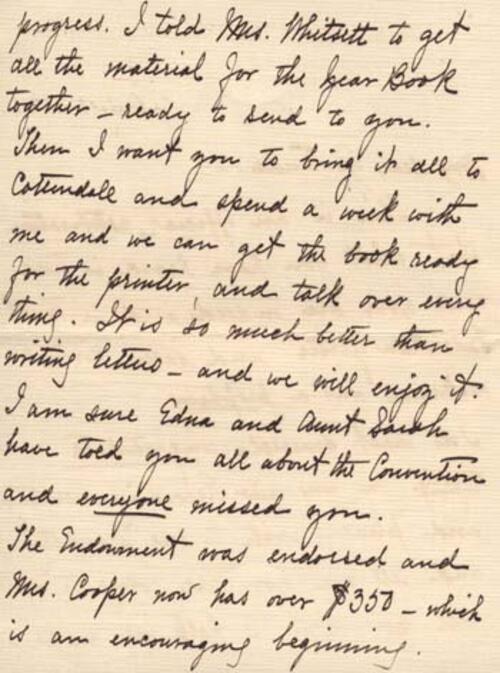 progress. I told Mrs. Whitsett to get
all the material for the Year Book
together – ready to send to you.
Then I want you to bring it all to
Cottendale and spend a week with
me and we can get the book ready
for the printer, and talk over every
thing. It is so much better than
writing letters – and we will enjoy it.
I am sure Edna and Aunt Sarah
have told you all about the Convention
and everyone missed you.
The Endowment was endorsed and
Mrs. Cooper now has over $350 – which
is an encouraging beginning.